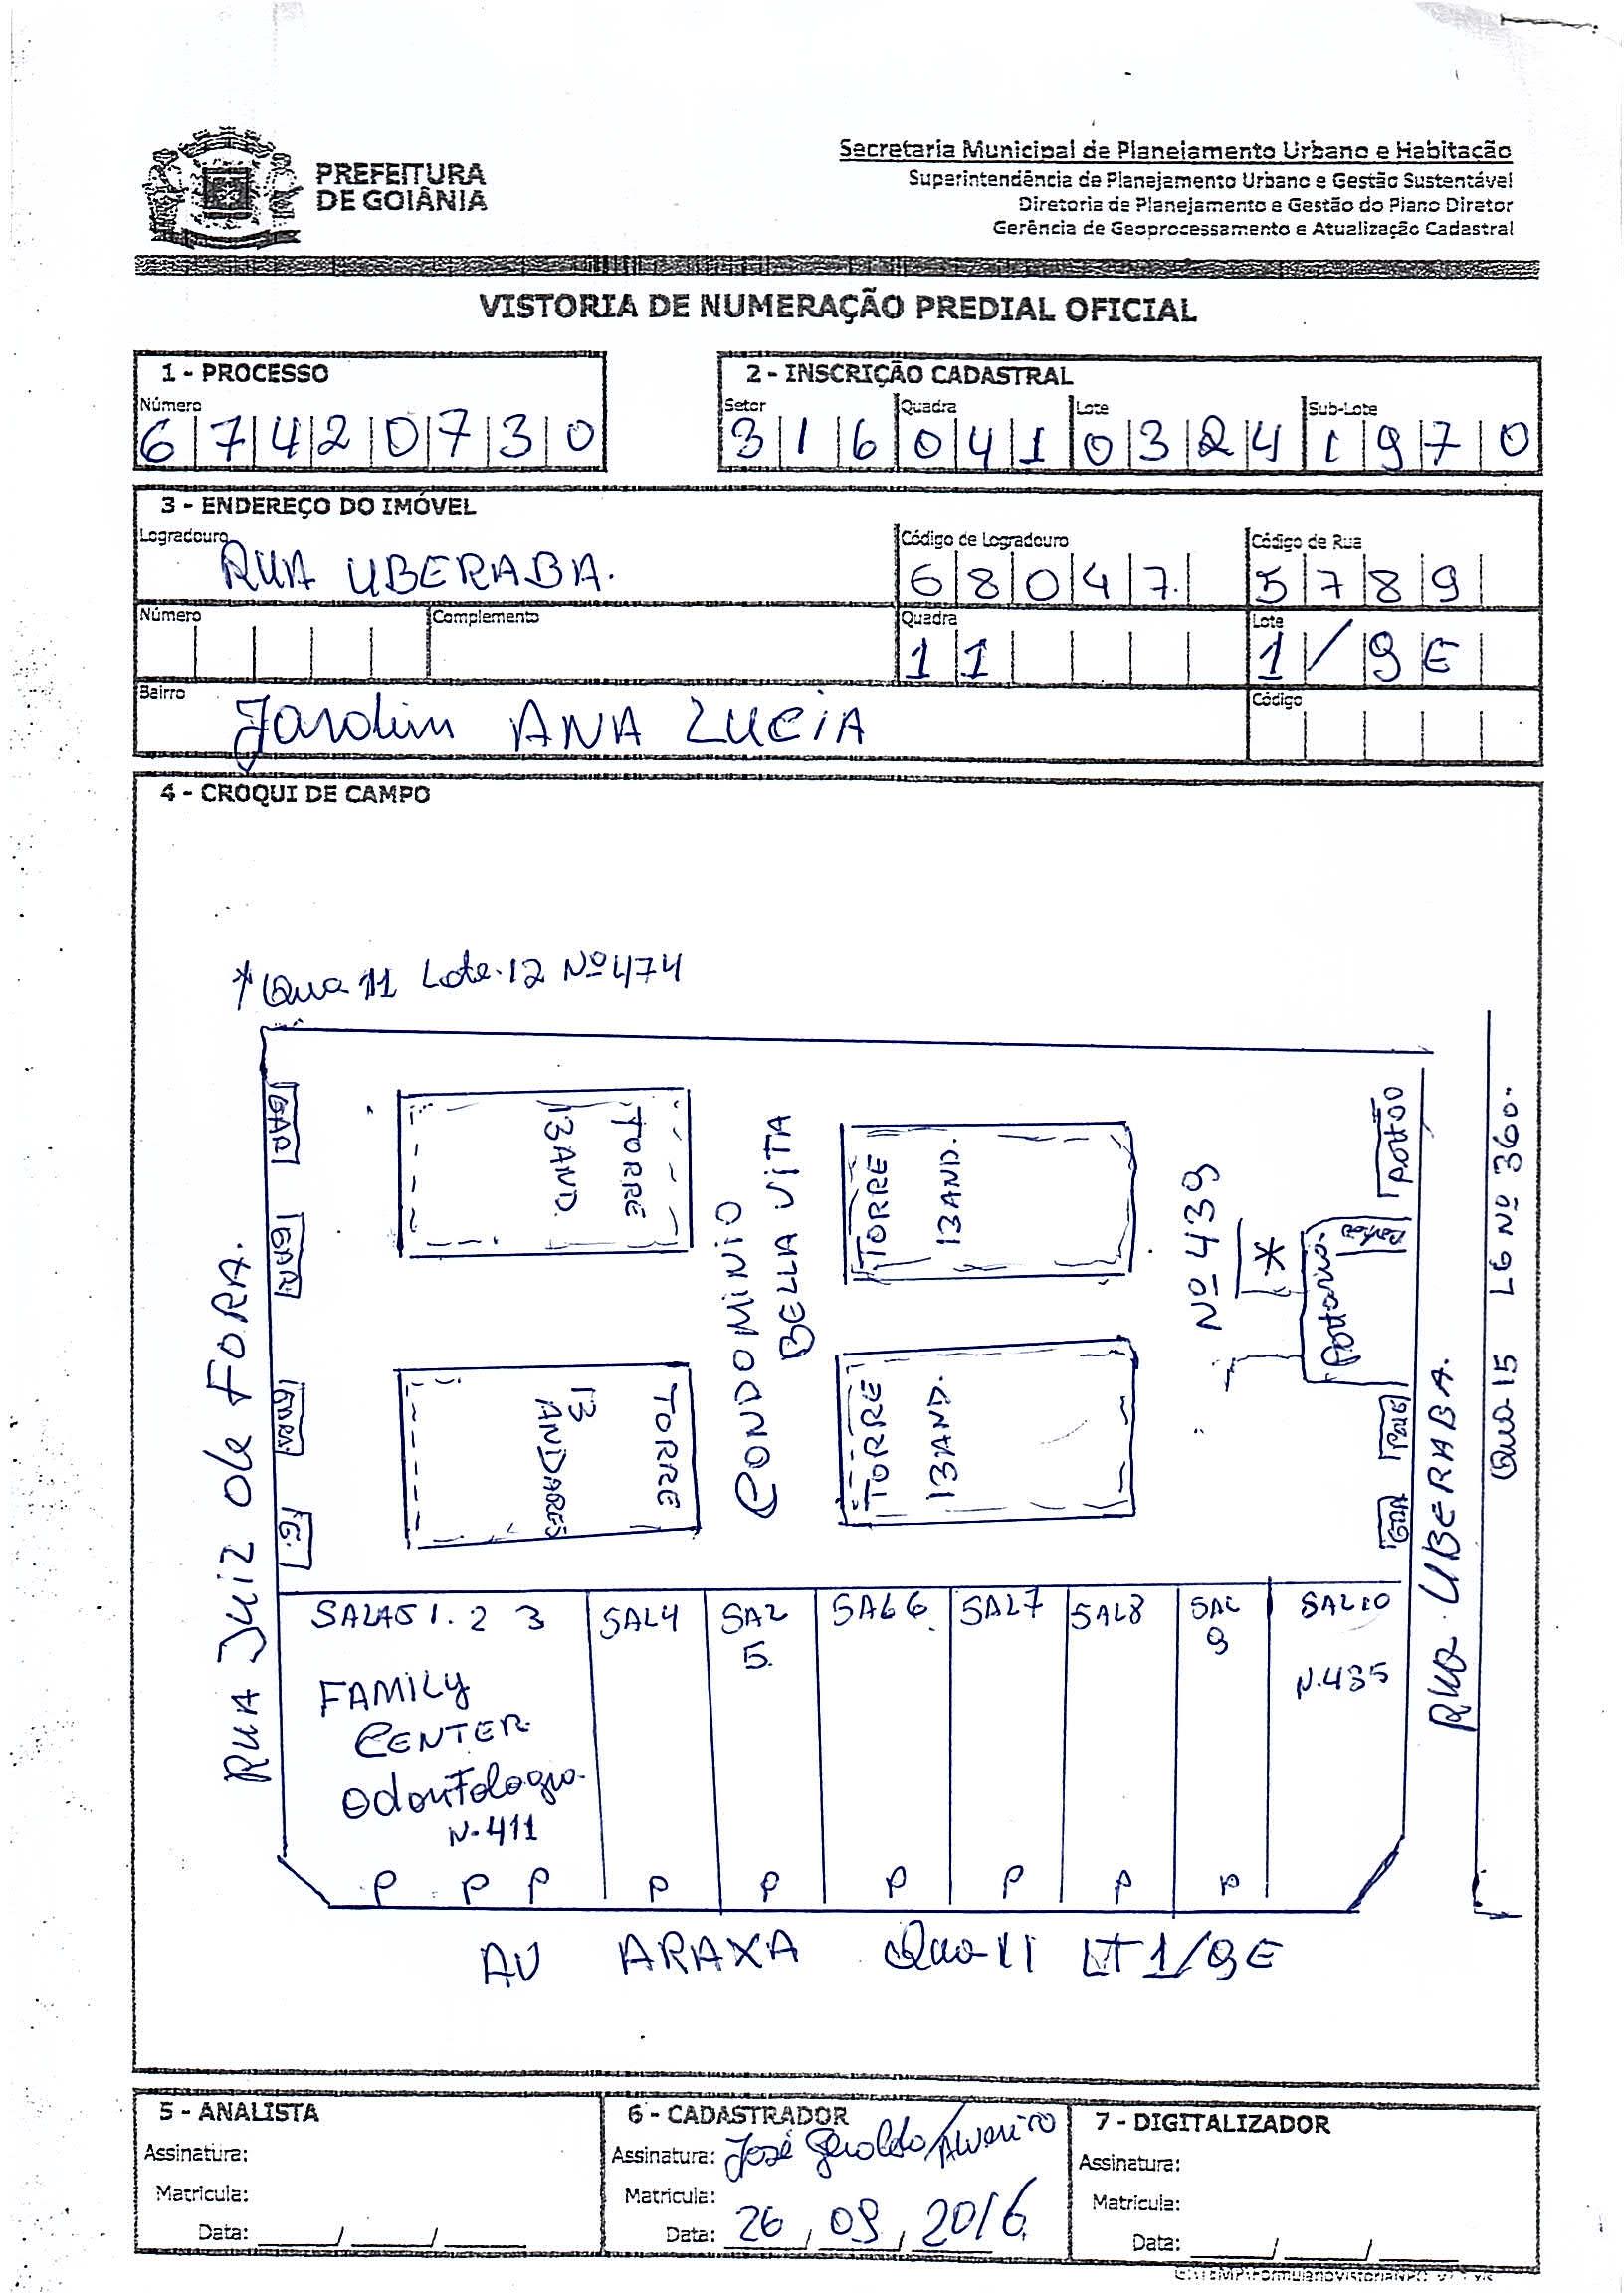 PREFEITURA
DE GOIÂNIA
Secretaria Municipal de Planejamento Urbano e Habitação
Superintendência de Planejamento Urbano e Gestão Sustentável
Diretoria de Planejamento e Gestão do Plano Diretor
Gerência de Geoprocessamento e Atualização Cadastral
VISTORIA DE NUMERAÇÃO PREDIAL OFICIAL
1 - PROCESSO
Número
67420730
2 - INSCRIÇÃO CADASTRAL
Setor Quadra Lote Sub-Lote
316 041 0324 1970
3 - ENDEREÇO DO IMÓVEL
Logradouro Código de Logradouro Código de Rua
RUA UBERABA. 68047. 5789
Número Complemento Quadra Lote
11 1/9E
Bairro Código
Jardim ANA LUCIA
4 - CROQUI DE CAMPO
Qua 11 Lote.12 Nº 474
GAR
GAR
GARA
G.
RUA Juiz de FORA.
TORRE
13 AND.
TORRE
13 ANDARES
CONDOMINIO
BELLA VITA
TORRE
13 AND.
TORRE
13 AND.
Nº 439
*
Portaria.
Portão
RUA UBERABA.
Qua 15 L6 Nº 360.
SALAS 1. 2 3
SAL4
SAL
5.
SAL6.
SAL7
SAL8
SAL
9
SAL10
N.435
FAMILY
CENTER
Odontologia.
N.411
P P P P P P P P P
AV ARAXA Qua 11 LT 1/9E
5 - ANALISTA
Assinatura:
Matricula:
Data: __/__/__
6 - CADASTRADOR
Assinatura: José Geraldo
Matricula:
Data: 26/09/2016
7 - DIGITALIZADOR
Assinatura:
Matricula:
Data: __/__/__